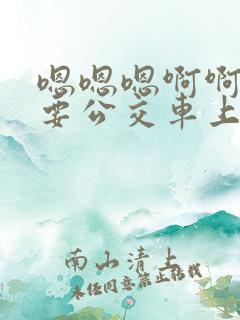 嗯嗯嗯啊啊
要公交车上
南山清上
未经同意禁止转载